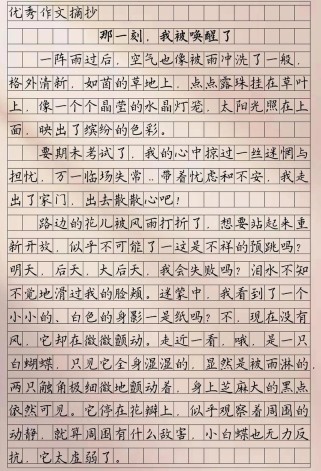 优秀作文摘抄
那一刻，我被唤醒了
一阵雨过后，空气也像被雨冲洗了一般，
格外清新，如茵的草地上，点点露珠挂在草叶
上，像一个个晶莹的水晶灯笼，太阳光照在上
面，映出了缤纷的色彩。
要期末考试了，我的心中掠过一丝迷惘与
担忧，万一临场失常..带着忧虑和不安，我走
出了家门，出去散散心吧！
路边的花儿被风雨打折了，想要站起来重
新开放，似乎不可能了一这是不祥的预跳吗？
明天，后天，大后天，我会失败吗？泪水不知
不觉地滑过我的脸颊。迷蒙中，我看到了一个
小小的、白色的身影一是纸吗？不，现在没有
风，它却在微微颤动。走近一看，哦，是一只
白蝴蝶，只见它全身湿湿的，显然是被雨淋的，
两只触角极细微地颤动着，身上芝麻大的黑点
依然可见。它停在花瓣上，似乎观察着周围的
动静，就算周围有什么敌害，小白蝶也无力反
抗，它太虚弱了。